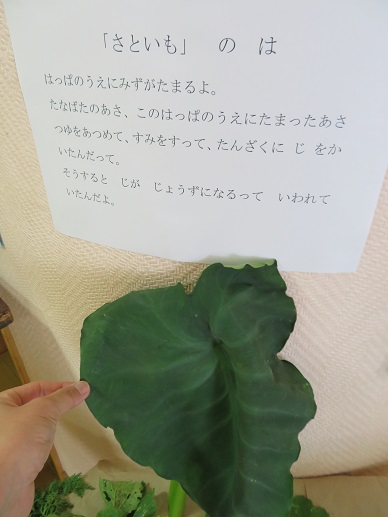 「さといも」　の　は
はっぱのうえにみずがたまるよ。
たなばたのあさ、このはっぱのうえにたまったあさ
つゆをあつめて、すみをすって、たんざくに　じ　をか
いたんだって。
そうすると　じが　じょうずになるって　いわれて
いたんだよ。